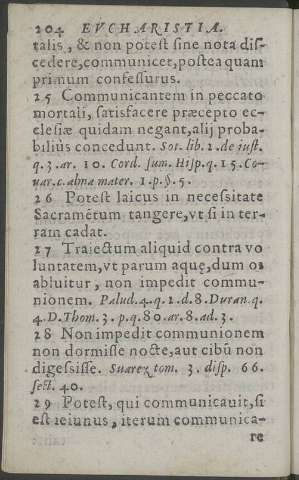 204 EVCHARISTIA.
talis, & non potest sine nota dis-
cedere, communicet, postea quam
primum confessurus.
25 Communicantem in peccato
mortali, satisfacere præcepto ec-
clesiæ quidam negant, alij proba-
biliùs concedunt. Sot. lib. 2. de iust.
q. 3. ar. 10. Cord. sum. Hisp. q. 15. Co-
uar. c. alma mater. 1. p. §. 5.
26 Potest laicus in necessitate
Sacramētum tangere, vt si in ter-
ram cadat.
27 Traiectum aliquid contra vo
luntatem, vt parum aquę, dum os
abluitur, non impedit commu-
nionem. Palud. 4. q. 2. d. 8. Duran. q.
4. D. Thom. 3. p. q. 80. ar. 8. ad. 3.
28 Non impedit communionem
non dormisse nocte, aut cibū non
digessisse. Suarez tom. 3. disp. 66.
sect. 40.
29 Potest, qui communicauit, si
est ieiunus, iterum communica-
re